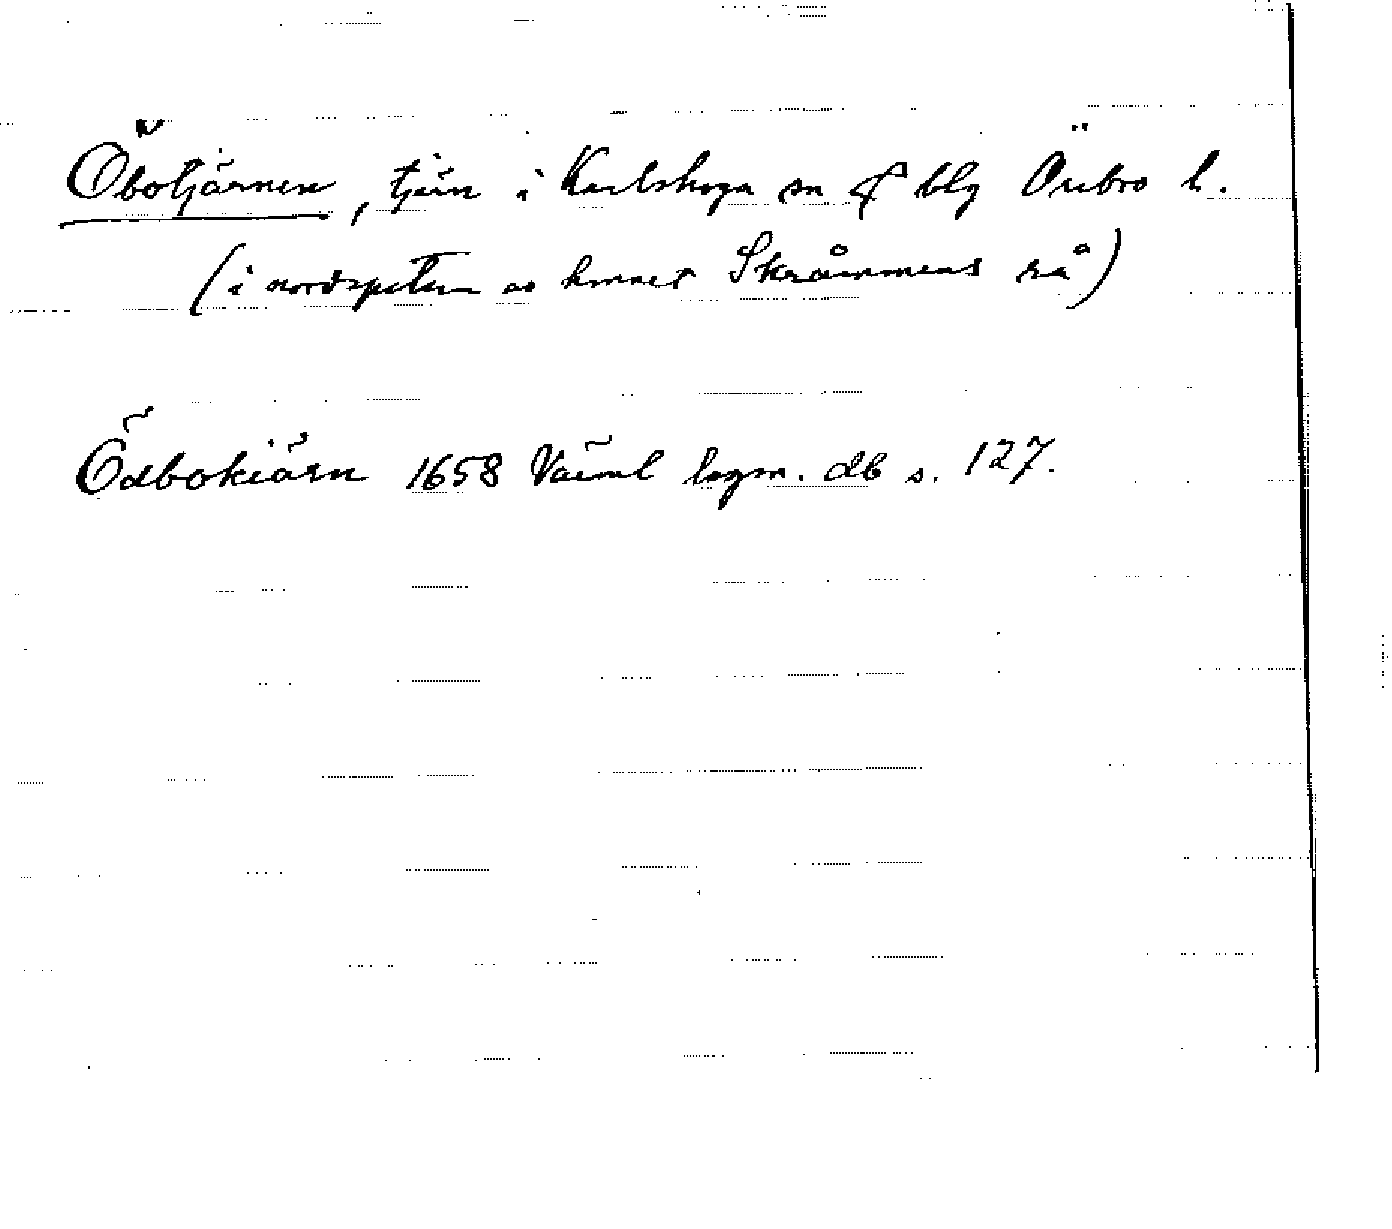 Öbotjärnen, tjärn i Karlskoga sn & blg Örebro l.
(i nordspetsen av hmnet Skråmmens rå)
Ödbokiärn 1658 Värml lagm. db s. 127.